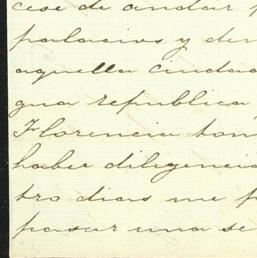 cese de andar p
palacios y dem
aquella ciudad
gua republica
Florencia tom
haber diligencia
tro dias me p
pasar una se